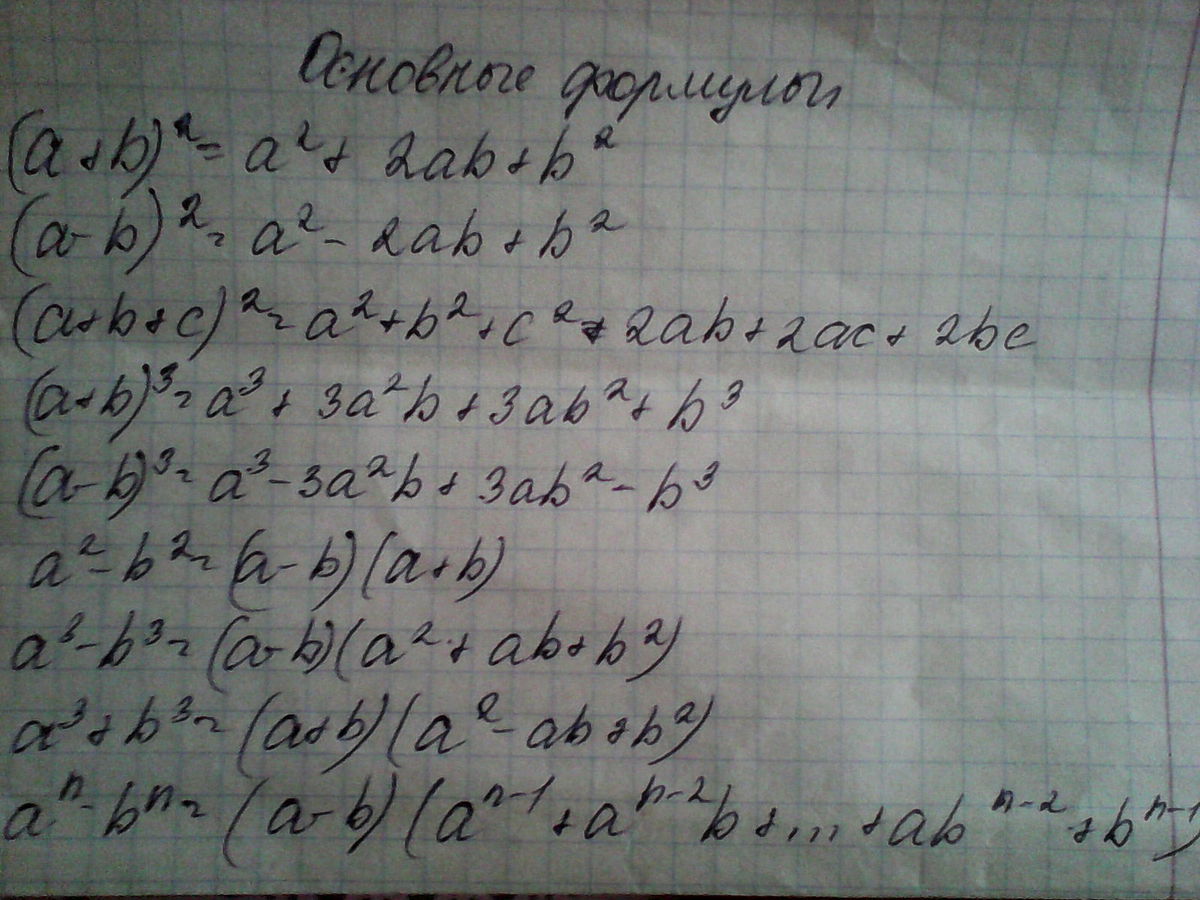 Основные формулы
(a+b)²= a²+ 2ab+b²
(a-b)²= a²- 2ab+b²
(a+b+c)²= a²+b²+c²+2ab+2ac+2bc
(a+b)³= a³+ 3a²b+3ab²+ b³
(a-b)³= a³-3a²b+3ab²-b³
a²-b²=(a-b)(a+b)
a³-b³=(a-b)(a²+ab+b²)
a³+b³=(a+b)(a²-ab+b²)
aⁿ-bⁿ=(a-b)(aⁿ⁻¹+aⁿ⁻²b+...+abⁿ⁻²+bⁿ⁻¹)